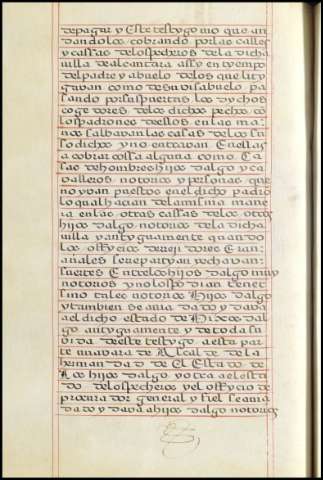 de pagar y este testygo vio que an
dandolos cobrando por las calles
y cassas de los pecheros de la dicha
villa de alcantara assy en tyempo
del padre y abuelo de los que lity
gavan como de su visabuelo pa
sando por sus puertas los dychos
cogedores de los dichos pechos co
los padrones de ellos en las ma
nos salbavan las casas de los su
so dichos y no entravan en ellas
a cobrar cossa alguna como ca
sas de hombres hijos dalgo y ca
valleros notorios y personas que
no yvan puestos en el dicho padro
lo qual hacian de la misma mane
ra en las otras cassas de los otros
hijos dalgo notorios de la dicha
villa y antyguamente quando
los offycios de rregidores eran
añales se repartyan y echavan
suertes entre los hijos dalgo muy
notorios y no los podian tener
sino tales notorios hijos dalgo
y tambien se avia dado y dava
al dicho estado de hijos dal
go antyguamente y de toda su
vida de este testygo a esta par
te una vara de alcalde de la
hermandad de el estado de
los hijos dalgo y otra al esta
do de los pecheros y el offycio de
procurador general y fiel se avia
dado y dava a hijos dalgo notorios